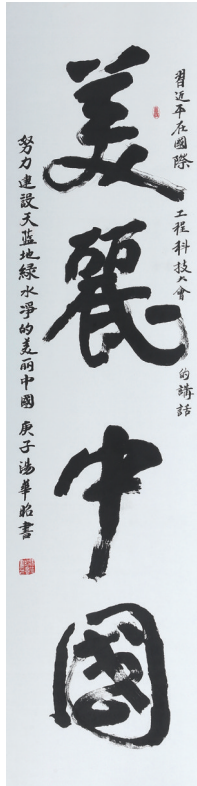 習近平在國際工程科技大會的講話
美麗中國
努力建設天蓝地緑水淨的美丽中國 庚子湯華昭書